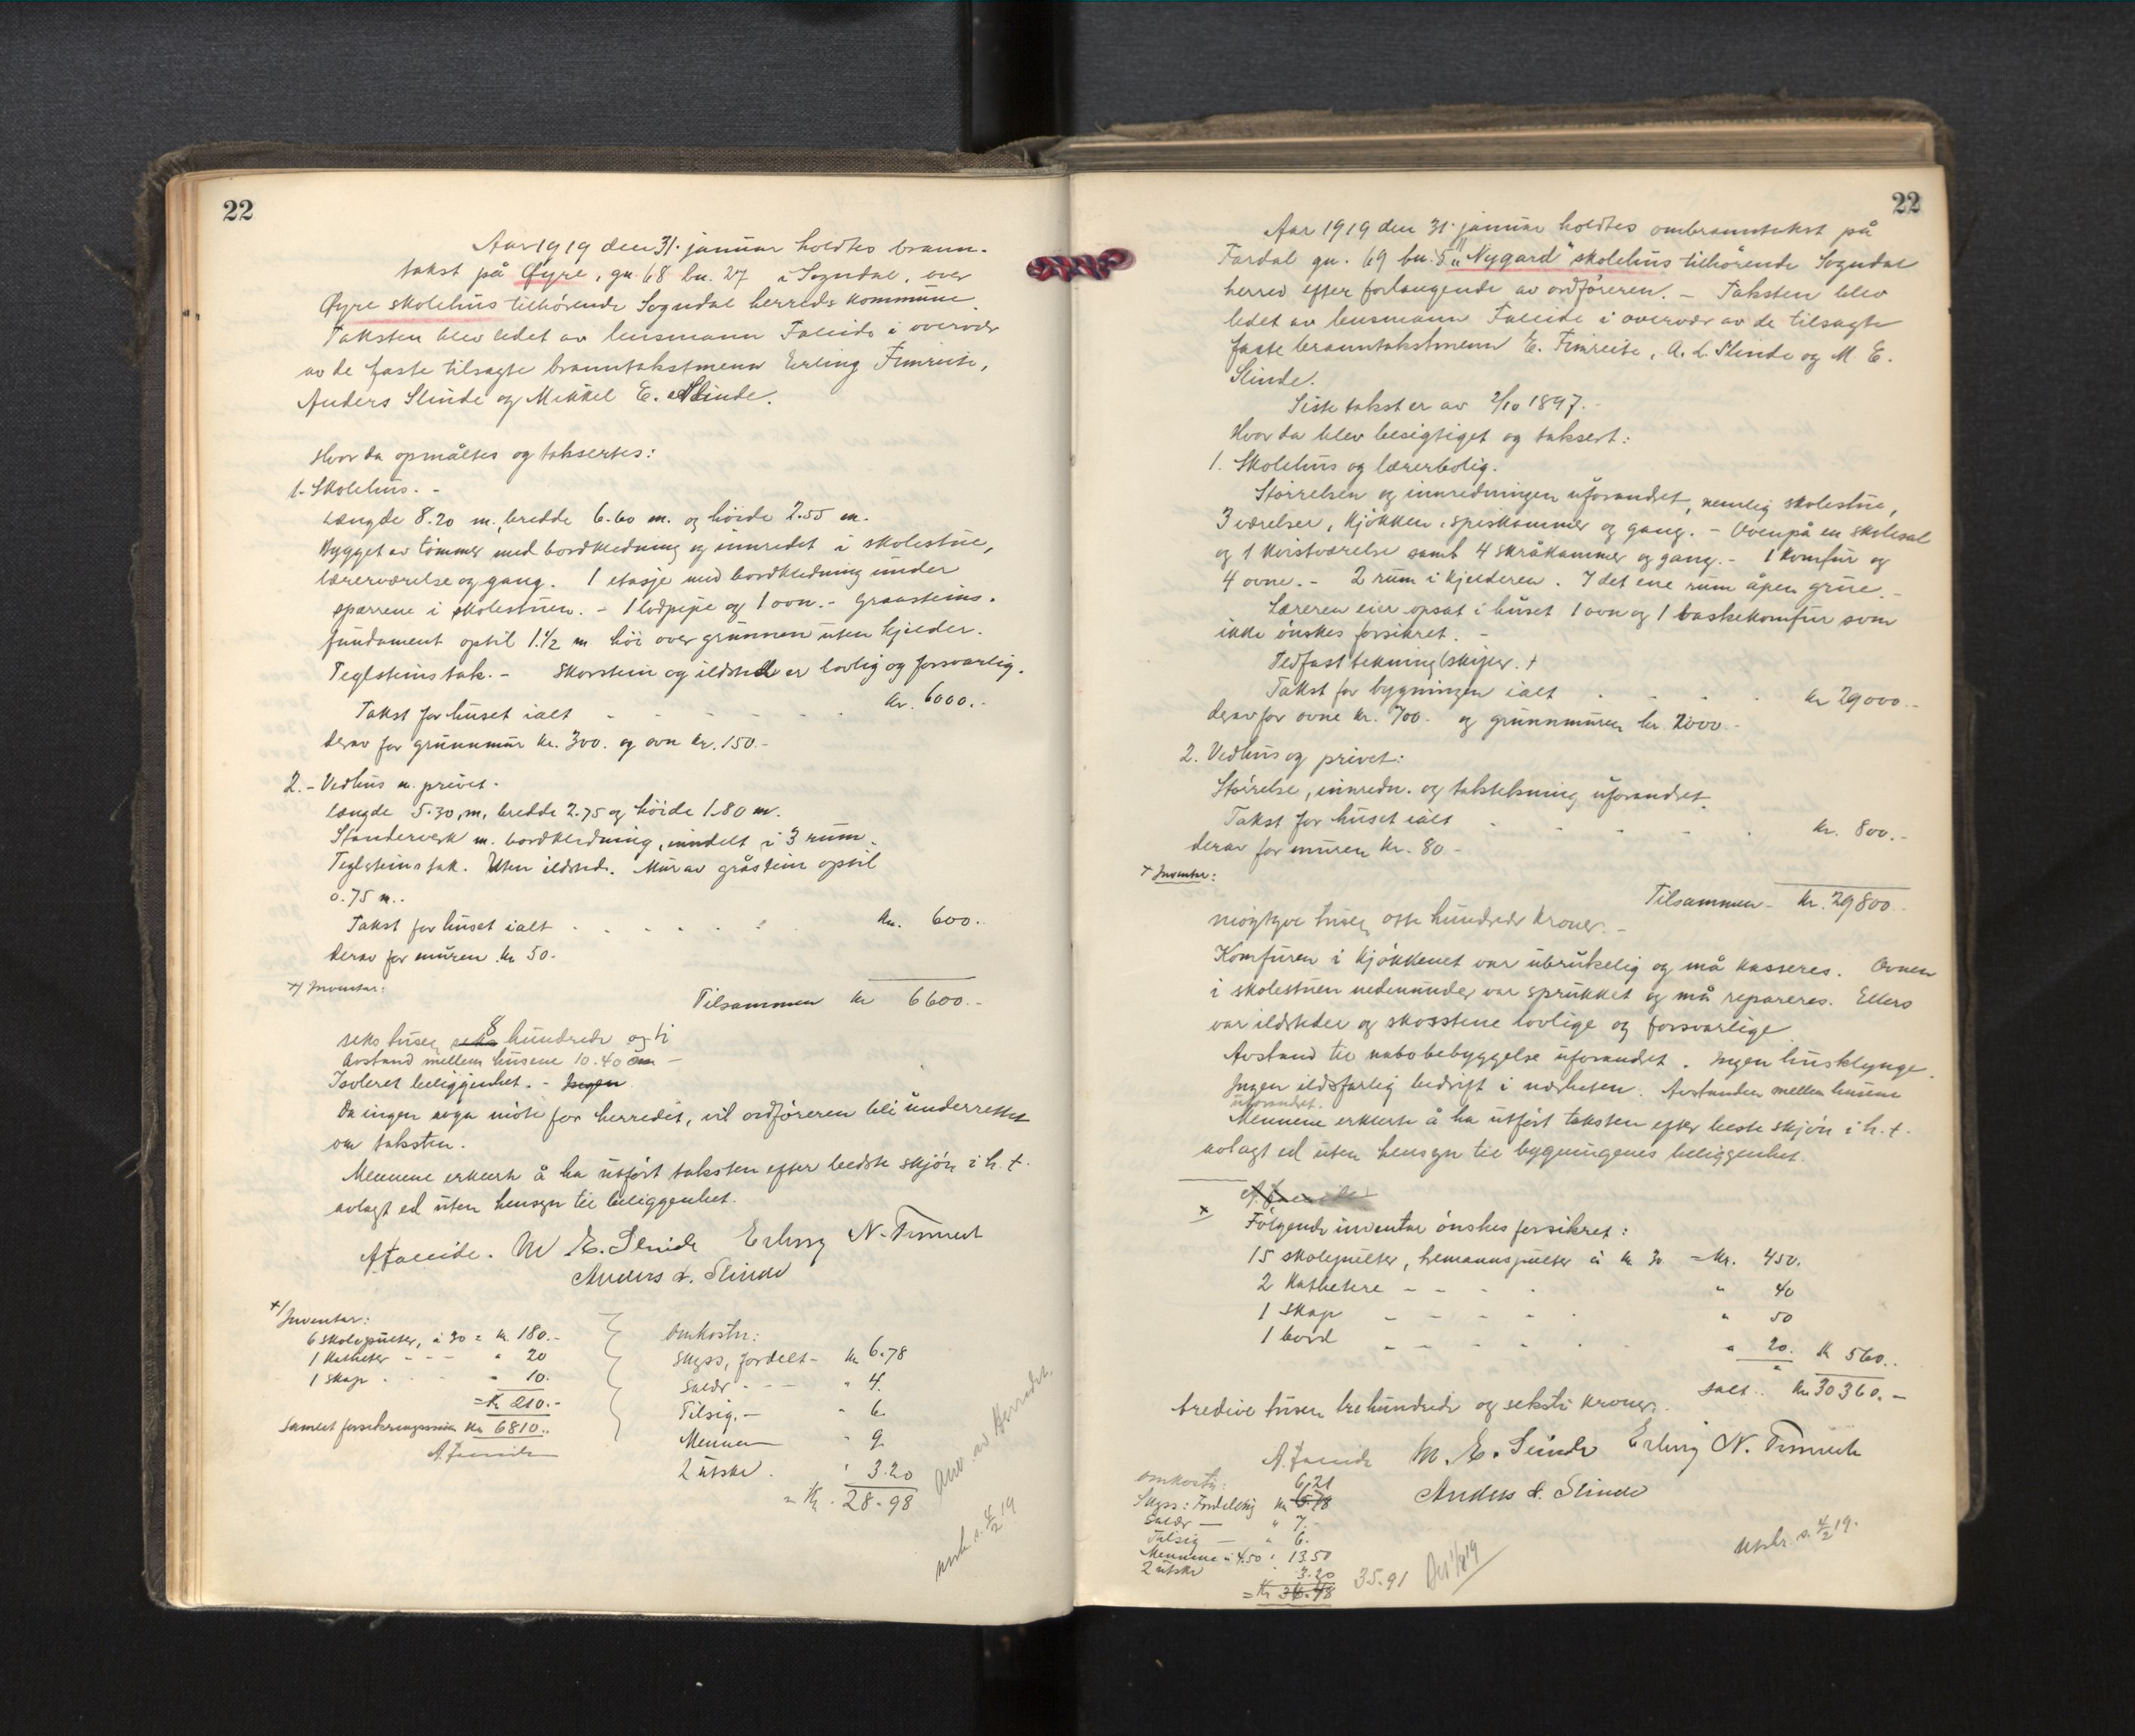 22
Aar 1919 den 31. januar holdtes brann-
takst på Øyre, gn. 68 bn. 27 i Sogndal, over
Øyre skolehus tilhørende Sogndal herreds kommune
Taksten blev ledet av lensmann Faleide i overvær
av de faste tilsagte branntakstmenn Erling Fimreite,
Anders Slinde og Mikkel E. Slinde.
Hvor da opmåltes og taksertes:
1. Skolehus. -
Længde 8.20 m., bredde 6.60 m. og høide 2.55 m.
Bygget av tømmer med bordkledning og innredet i skolestue,
lærerværelse og gang. 1 etasje med bordkledning under
sparrene i skolestuen. - 1 lodpipe og 1 ovn. - Graasteins-
fundament optil 1.1/2 m høi over grunnen uten kjelder.
Teglsteinstak. - Skorstein og ildsted er lovlig og forsvarlig.
Takst for huset ialt - - - - - - kr. 6000.-
derav for grunnmur kr. 300. og ovn kr. 150.-
2. - Vedhus m. privet.
længde 5.30, m, bredde 2.75 og høide 1.80 m.
Standerverk m. bordkledning, inndelt i 3 rum.
Teglsteinstak. Uten ildsted. Mur av gråstein optil
0.75 m..
Takst for huset ialt . . . . . . kr. 600..
derav for muren kr 50.
x/ Inventar:
Tilsammen kr 6600.-
seks tusen seks 8 hundrede og ti
Avstand mellem husene 10.40 m -
Isoleret beliggenhet. - Ingen
Da ingen avga møte for herredet, vil ordføreren bli underrettet
om taksten.
Mennene erklærte å ha utført taksten efter bedste skjøn i h. t.
avlagt ed uten hensyn til beliggenhet.
A Faleide. M E. Slinde Erling N. Fimreit
Anders L. Slinde
x/ Inventar:
6 skolepulter, à 30 = kr. 180.-
1 Katheter - - - " 20
1 skap . . " 10.
= Kr 210.-
Samlet forsikringssum kr 6810..
A. Faleide
Omkostn:
Skyss, fordelt - kr 6.78
Salær - - - " 4.
Tilsig. - " 6.
Mennene " 9.
2 utskr. " 3.20
= Kr. 28.98
anv. av Herredet.
utskr. s. 4/2 19
22
Aar 1919 den 31. januar holdtes ombranntakst på
Fardal gn. 69 bn. 5 "Nygard" skolehus tilhørende Sogndal
herred efter forlangende av ordføreren. - Taksten blev
ledet av lensmann Faleide i overvær av de tilsagte
faste branntakstmenn E. Fimreite, A. L. Slinde og M. E.
Slinde.
Siste takst er av 2/10 1897.-
Hvor da blev besigtiget og taksert:
1. Skolehus og lærerbolig.
Størrelsen og innredningen uforandret, nemlig skolestue,
3 værelser, kjøkken, spiskammer og gang. - Ovenpå en skolesal
og 1 kvistværelse samt 4 skråkammer og gang. - 1 komfur og
4 ovne. - 2 rum i kjelderen. I det ene rum åpen grue. -
Læreren eier opsat i huset 1 ovn og 1 vaskekomfur som
ikke ønskes forsikret. -
Ildfast tekning (skifer. +
Takst for bygningen ialt . . . . kr 29000.-
derav for ovne kr. 700. og grunnmuren kr. 2000.-
2. Vedhus og privet:
Størrelse, innredn. og taktekning uforandret.
Takst for huset ialt - - - - - kr. 800.-
derav for muren kr. 80 -
+ Inventar:
Tilsammen - kr. 29800.-
niogtyve tusen otte hundrede kroner. -
Komfuren i kjøkkenet var ubrukelig og må kasseres. Ovnen
i skolestuen nedenunder var sprukket og må repareres. Ellers
var ildsteder og skorstene lovlige og forsvarlige
Avstand til nabobebyggelse uforandret. Ingen husklynge.
Ingen ildsfarlig bedrift i nærheten. Avstanden mellem husene
uforandret.
Mennene erklærte å ha utført taksten efter beste skjøn i h. t.
avlagt ed uten hensyn til bygningenes beliggenhet.
A. Faleide
x Følgende inventar ønskes forsikret:
15 skolepulter, tremannspulter à kr 30 = kr. 450.
2 Kathetere - - . . " 40
1 skap - - - - . " 50
1 bord - - - . . " 20. kr 560..
Ialt.. kr 30360.-
tredive tusen trehundrede og seksti kroner.
A. Faleide M. E. Slinde Erling N. Fimreite
Anders L. Slinde
Omkostn:
Skyss: Fordeling kr 6.78 6,21
Salær - " 7.-
Tilsig - " 6.
Mennene à 4.50 " 13.50
2 utskr 3.20
= Kr 36.48 35.91
utskr. s. 4/2 19.